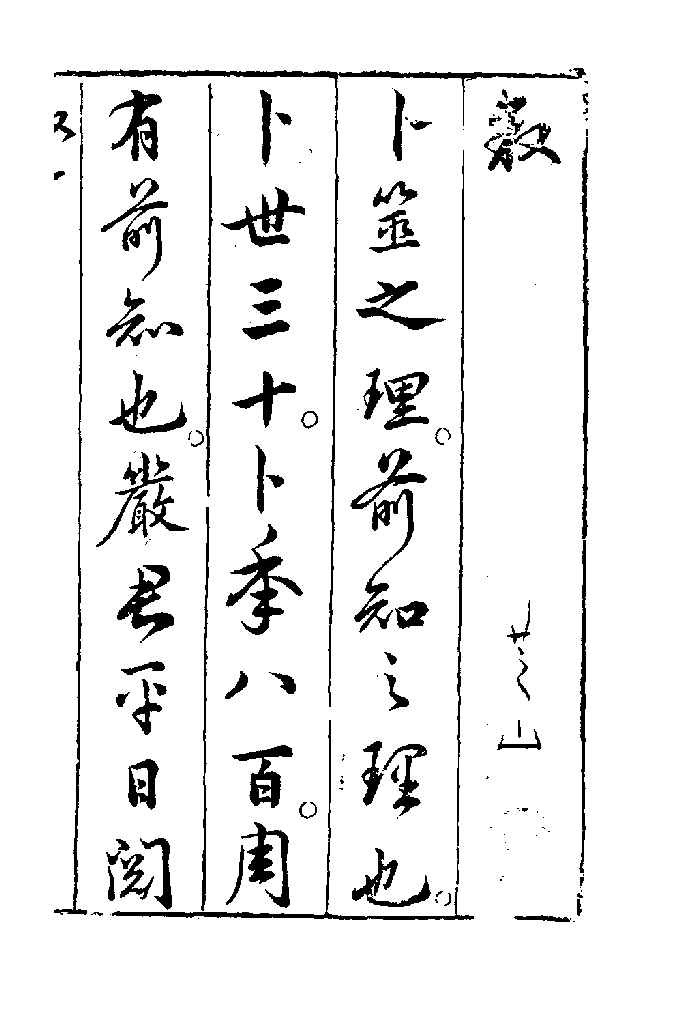 敘
芝山
卜筮之理。前知之理也。
卜世三十。卜年八百。周
有前知也。嚴君平日閱